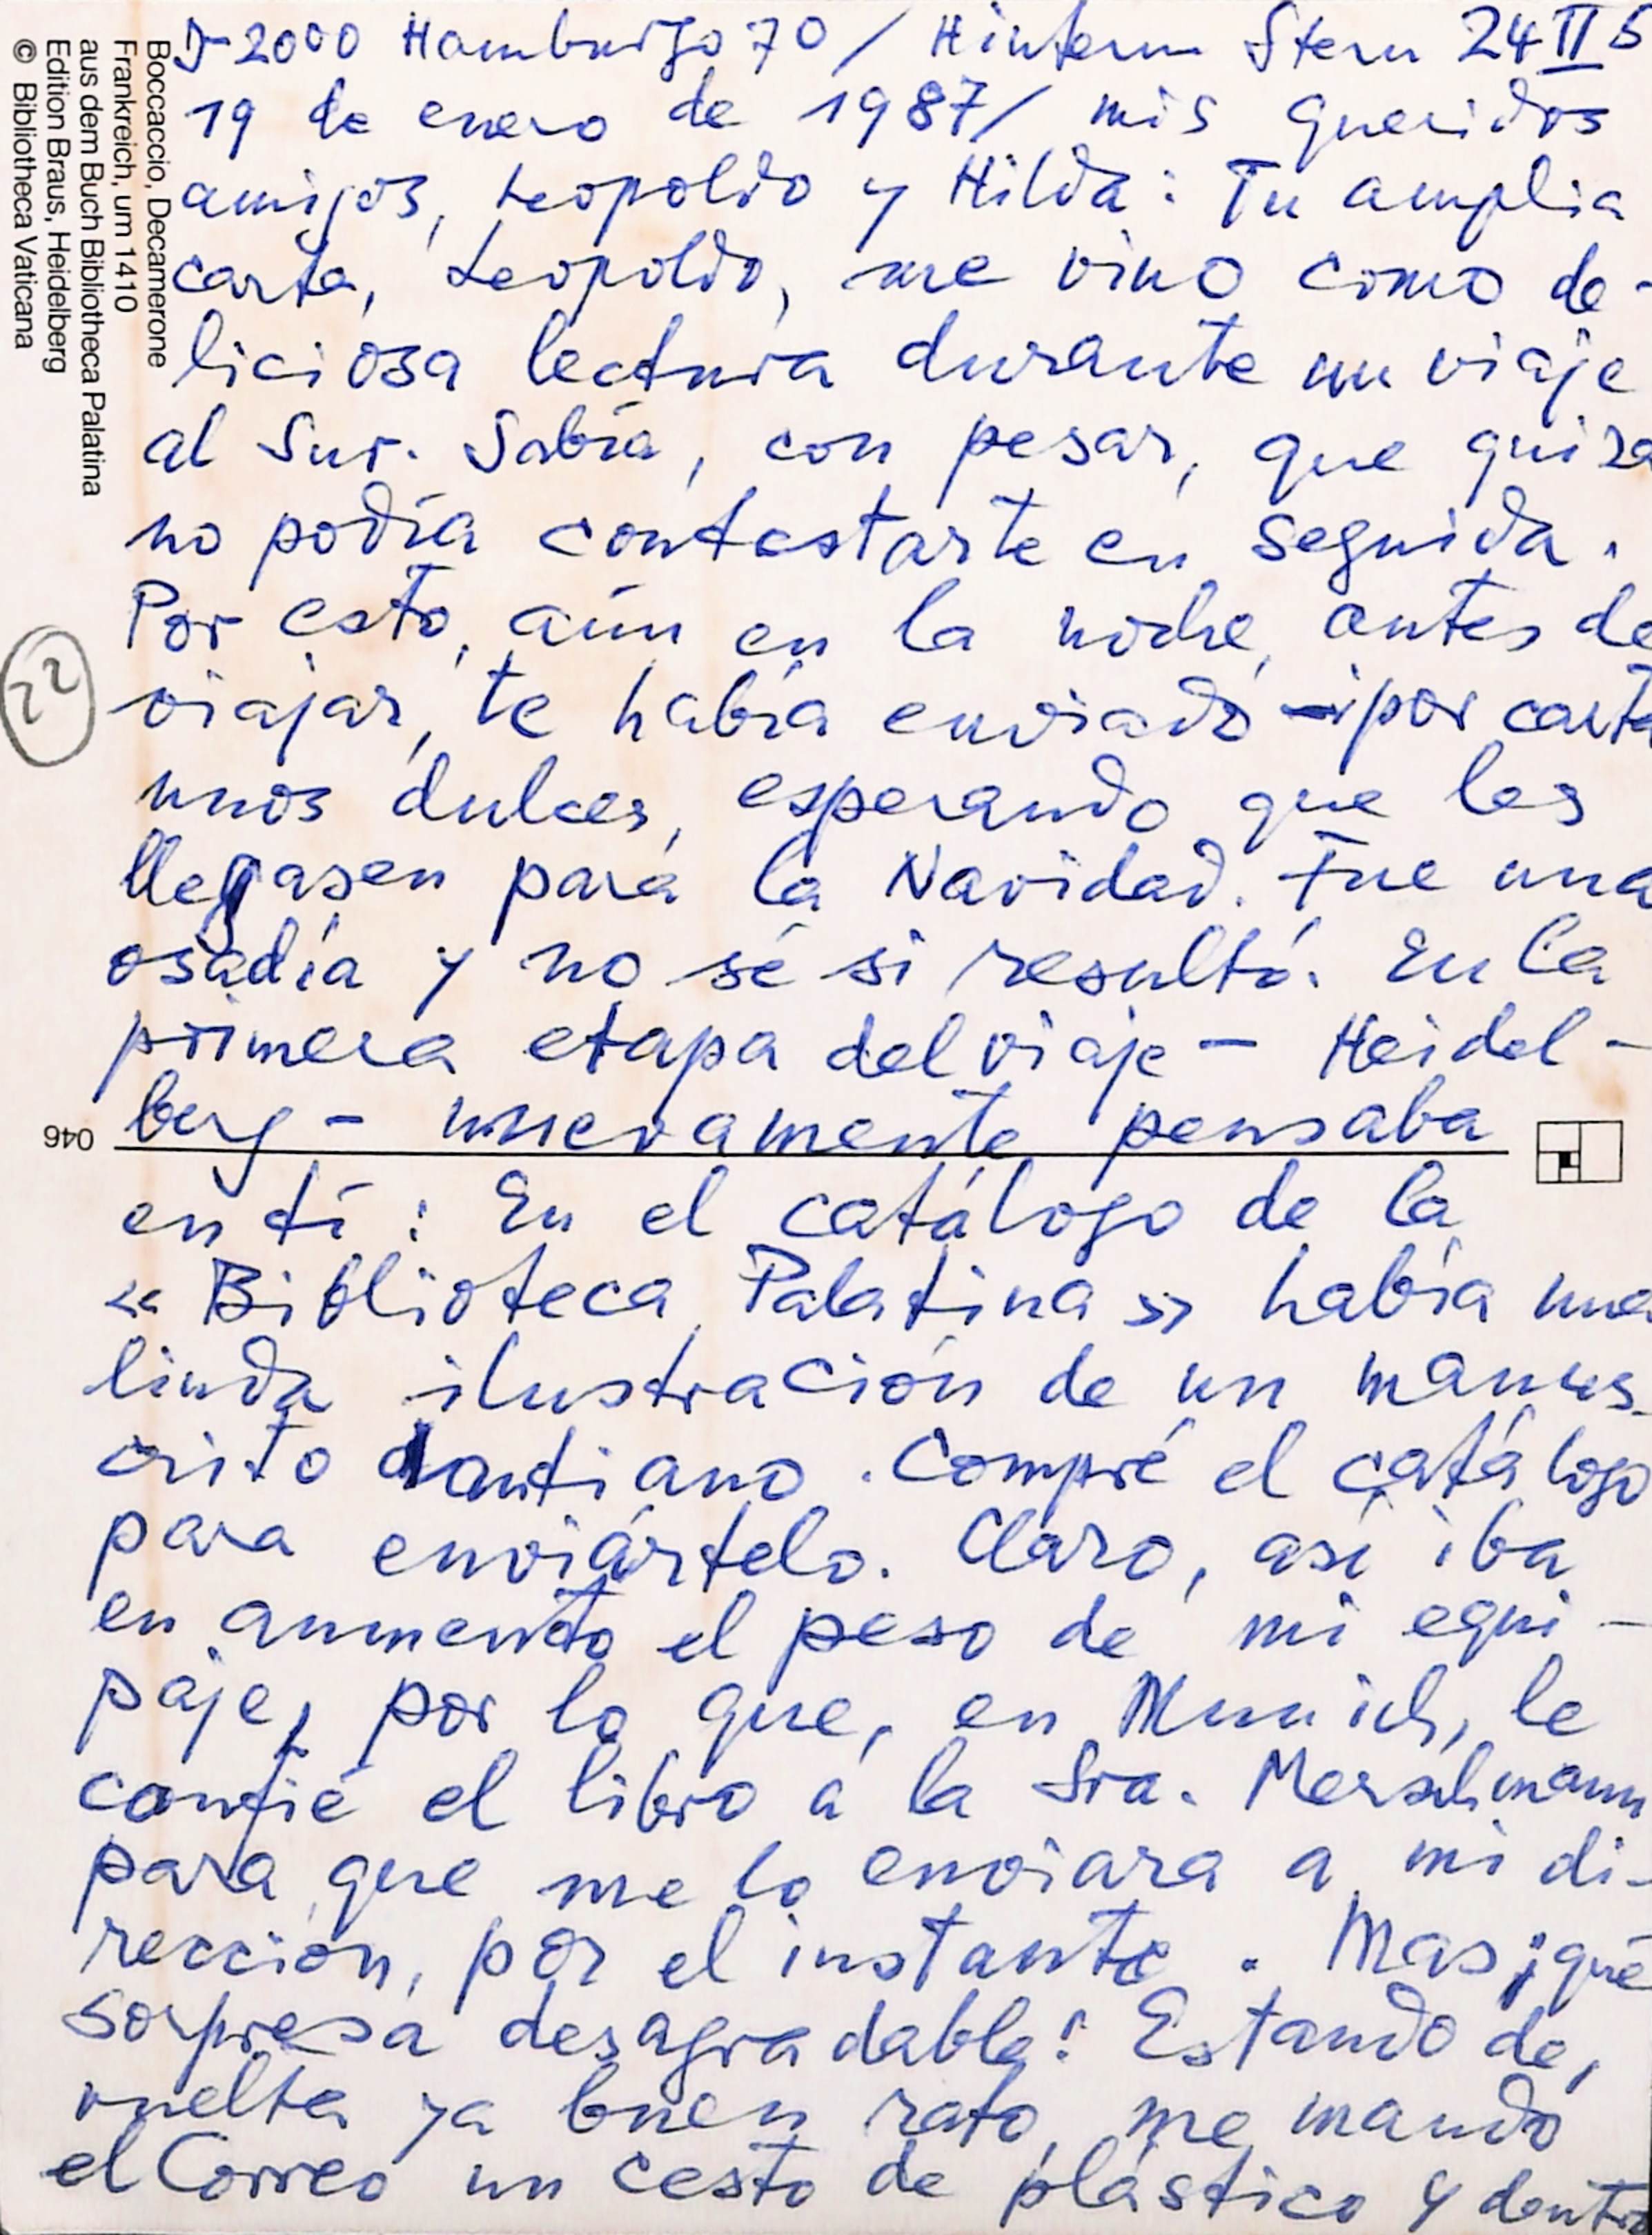 D-2000 Hamburgo 70 / Hinterm Stern 24 II B
19 de enero de 1987/ mis queridos
amigos, Leopoldo y Hilda: Tu amplia
carta, Leopoldo, me vino como de-
liciosa lectura durante un viaje
al Sur. Sabía, con pesar, que quiza
no podía contestarte en seguida.
Por esto, aún en la noche, antes de
viajar, te había enviado por carta
unos dulces, esperando que les
llegasen para la Navidad. Fue una
osadía y no sé si resultó. En la
primera etapa del viaje - Heidel-
berg - nuevamente pensaba
en tí: En el catálogo de la
« Biblioteca Palatina » había una
linda ilustración de un manus-
crito dantiano. Compré el catálogo
para enviártelo. Claro, así iba
en aumento el peso de mi equi-
paje, por lo que, en Munich, le
confié el libro a la Sra. Merschmann
para que me lo enviara a mi di-
rección, por el instante. Mas ¡qué
sorpresa desagradable! Estando de
vuelta ya buen rato, me mandó
el Correo un cesto de plástico y dentro
22
046
Boccaccio, Decamerone
Frankreich, um 1410
aus dem Buch Bibliotheca Palatina
Edition Braus, Heidelberg
© Bibliotheca Vaticana